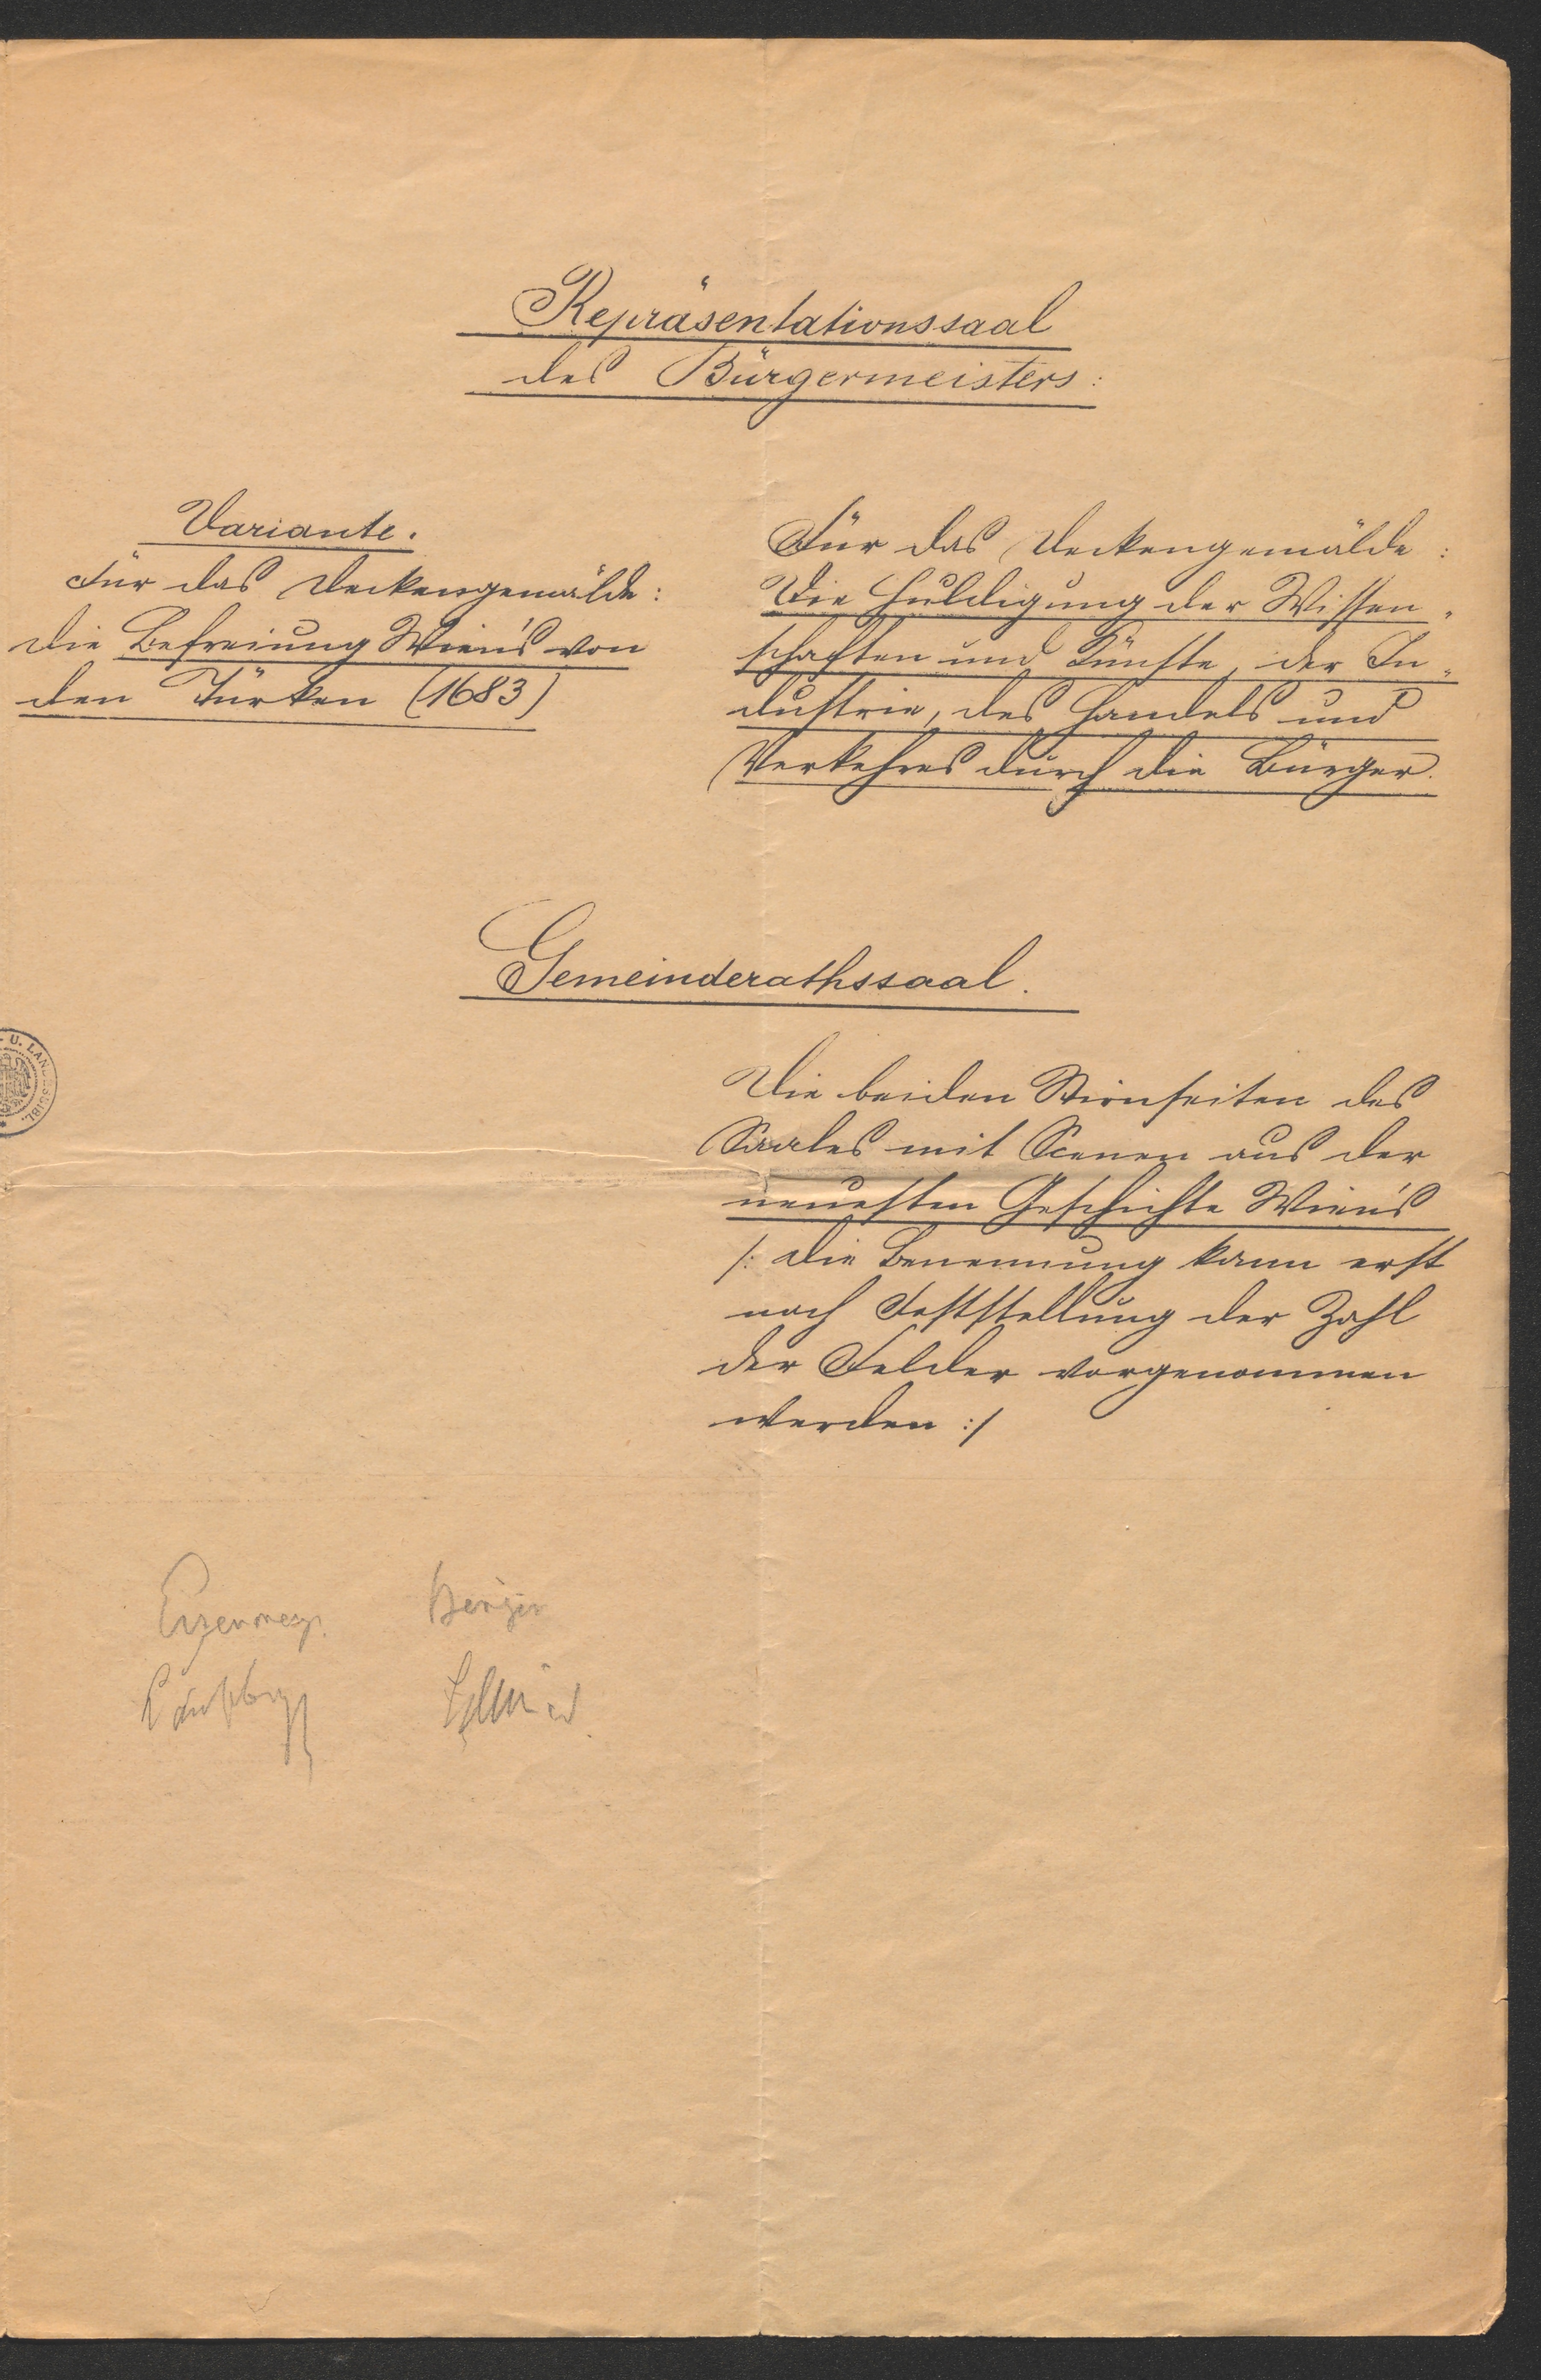 Repräsentationssaal
des Bürgermeisters:
Variante.
Für das Deckengemälde:
die Befreiung Wien's von
den Türken (1683)
Für das Deckengemälde:
Die Huldigung der Wissen„
schaften und Künste, der In„
dustrie, des Handels und
Verkehres durch die Bürger.
Gemeinderathssaal.
Die beiden Stirnseiten des
Saales mit Scenen aus der
neuesten Geschichte Wien's
/: die Benennung kann erst
nach Feststellung der Zahl
der Felder vorgenommen
werden :/
U. LANDESBIBL.
Berger